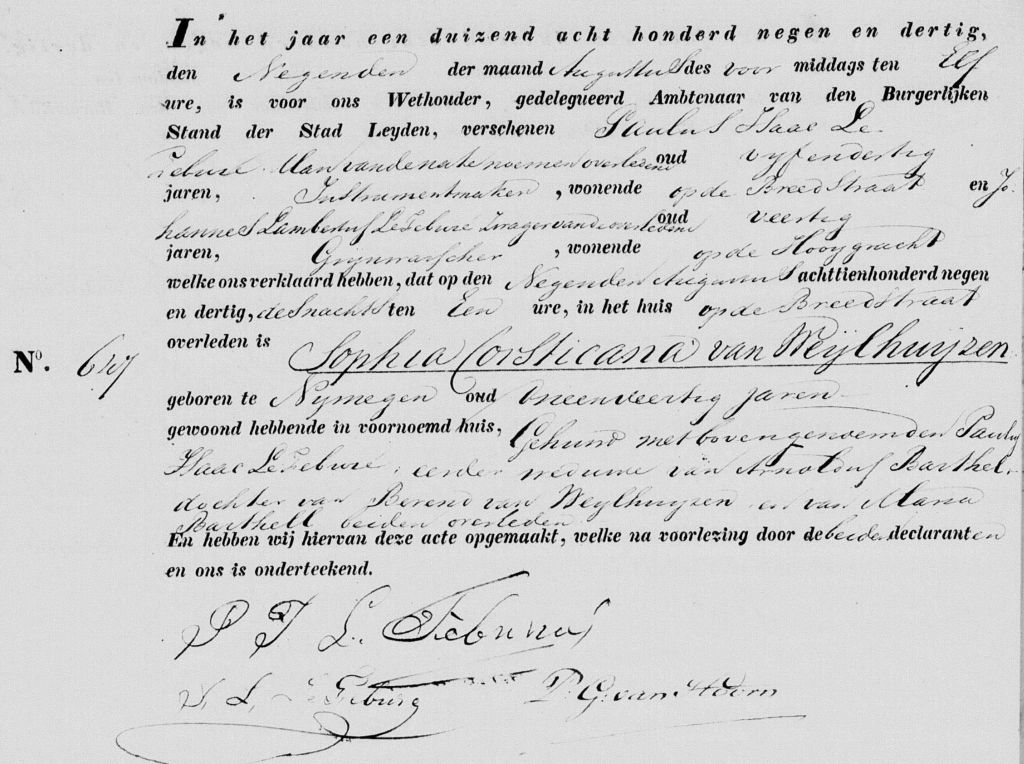 In het jaar een duizend acht honderd negen en dertig,
den Negenden der maand Augustus des voor middags ten Elf
ure, is voor ons Wethouder, gedelegueerd Ambtenaar van den Burgerlijken
Stand der Stad Leyden, verschenen Paulus Isaac Le
Febure Man van de nate noemen overledene oud vyfendertig
jaren, Instrumentmaker, wonende op de Breedstraat en Jo-
hannes Lambertus Le Febure Zwager van de overledene oud veertig
jaren, wonende op de Hooygracht
welke ons verklaard hebben, dat op den Negenden Augustus achttienhonderd negen
en dertig, des nachts ten Een ure, in het huis op de Breedstraat
overleden is Sophia Corsticana van Weylhuyzen
No. 647
geboren te Nymegen oud Eneenveertig jaren
gewoond hebbende in voornoemd huis, Gehuwd met bovengenoemden Paulus
Isaac Le Febure, eerder weduwe van Arnoldus Barthel,
dochter van Berend van Weylhuyzen en van Maria
Barthell beiden overleden
En hebben wij hiervan deze acte opgemaakt, welke na voorlezing door de beiden declaranten
en ons is onderteekend.
P I Le Febure
J. L. Le Febure P. G. van Hoorn